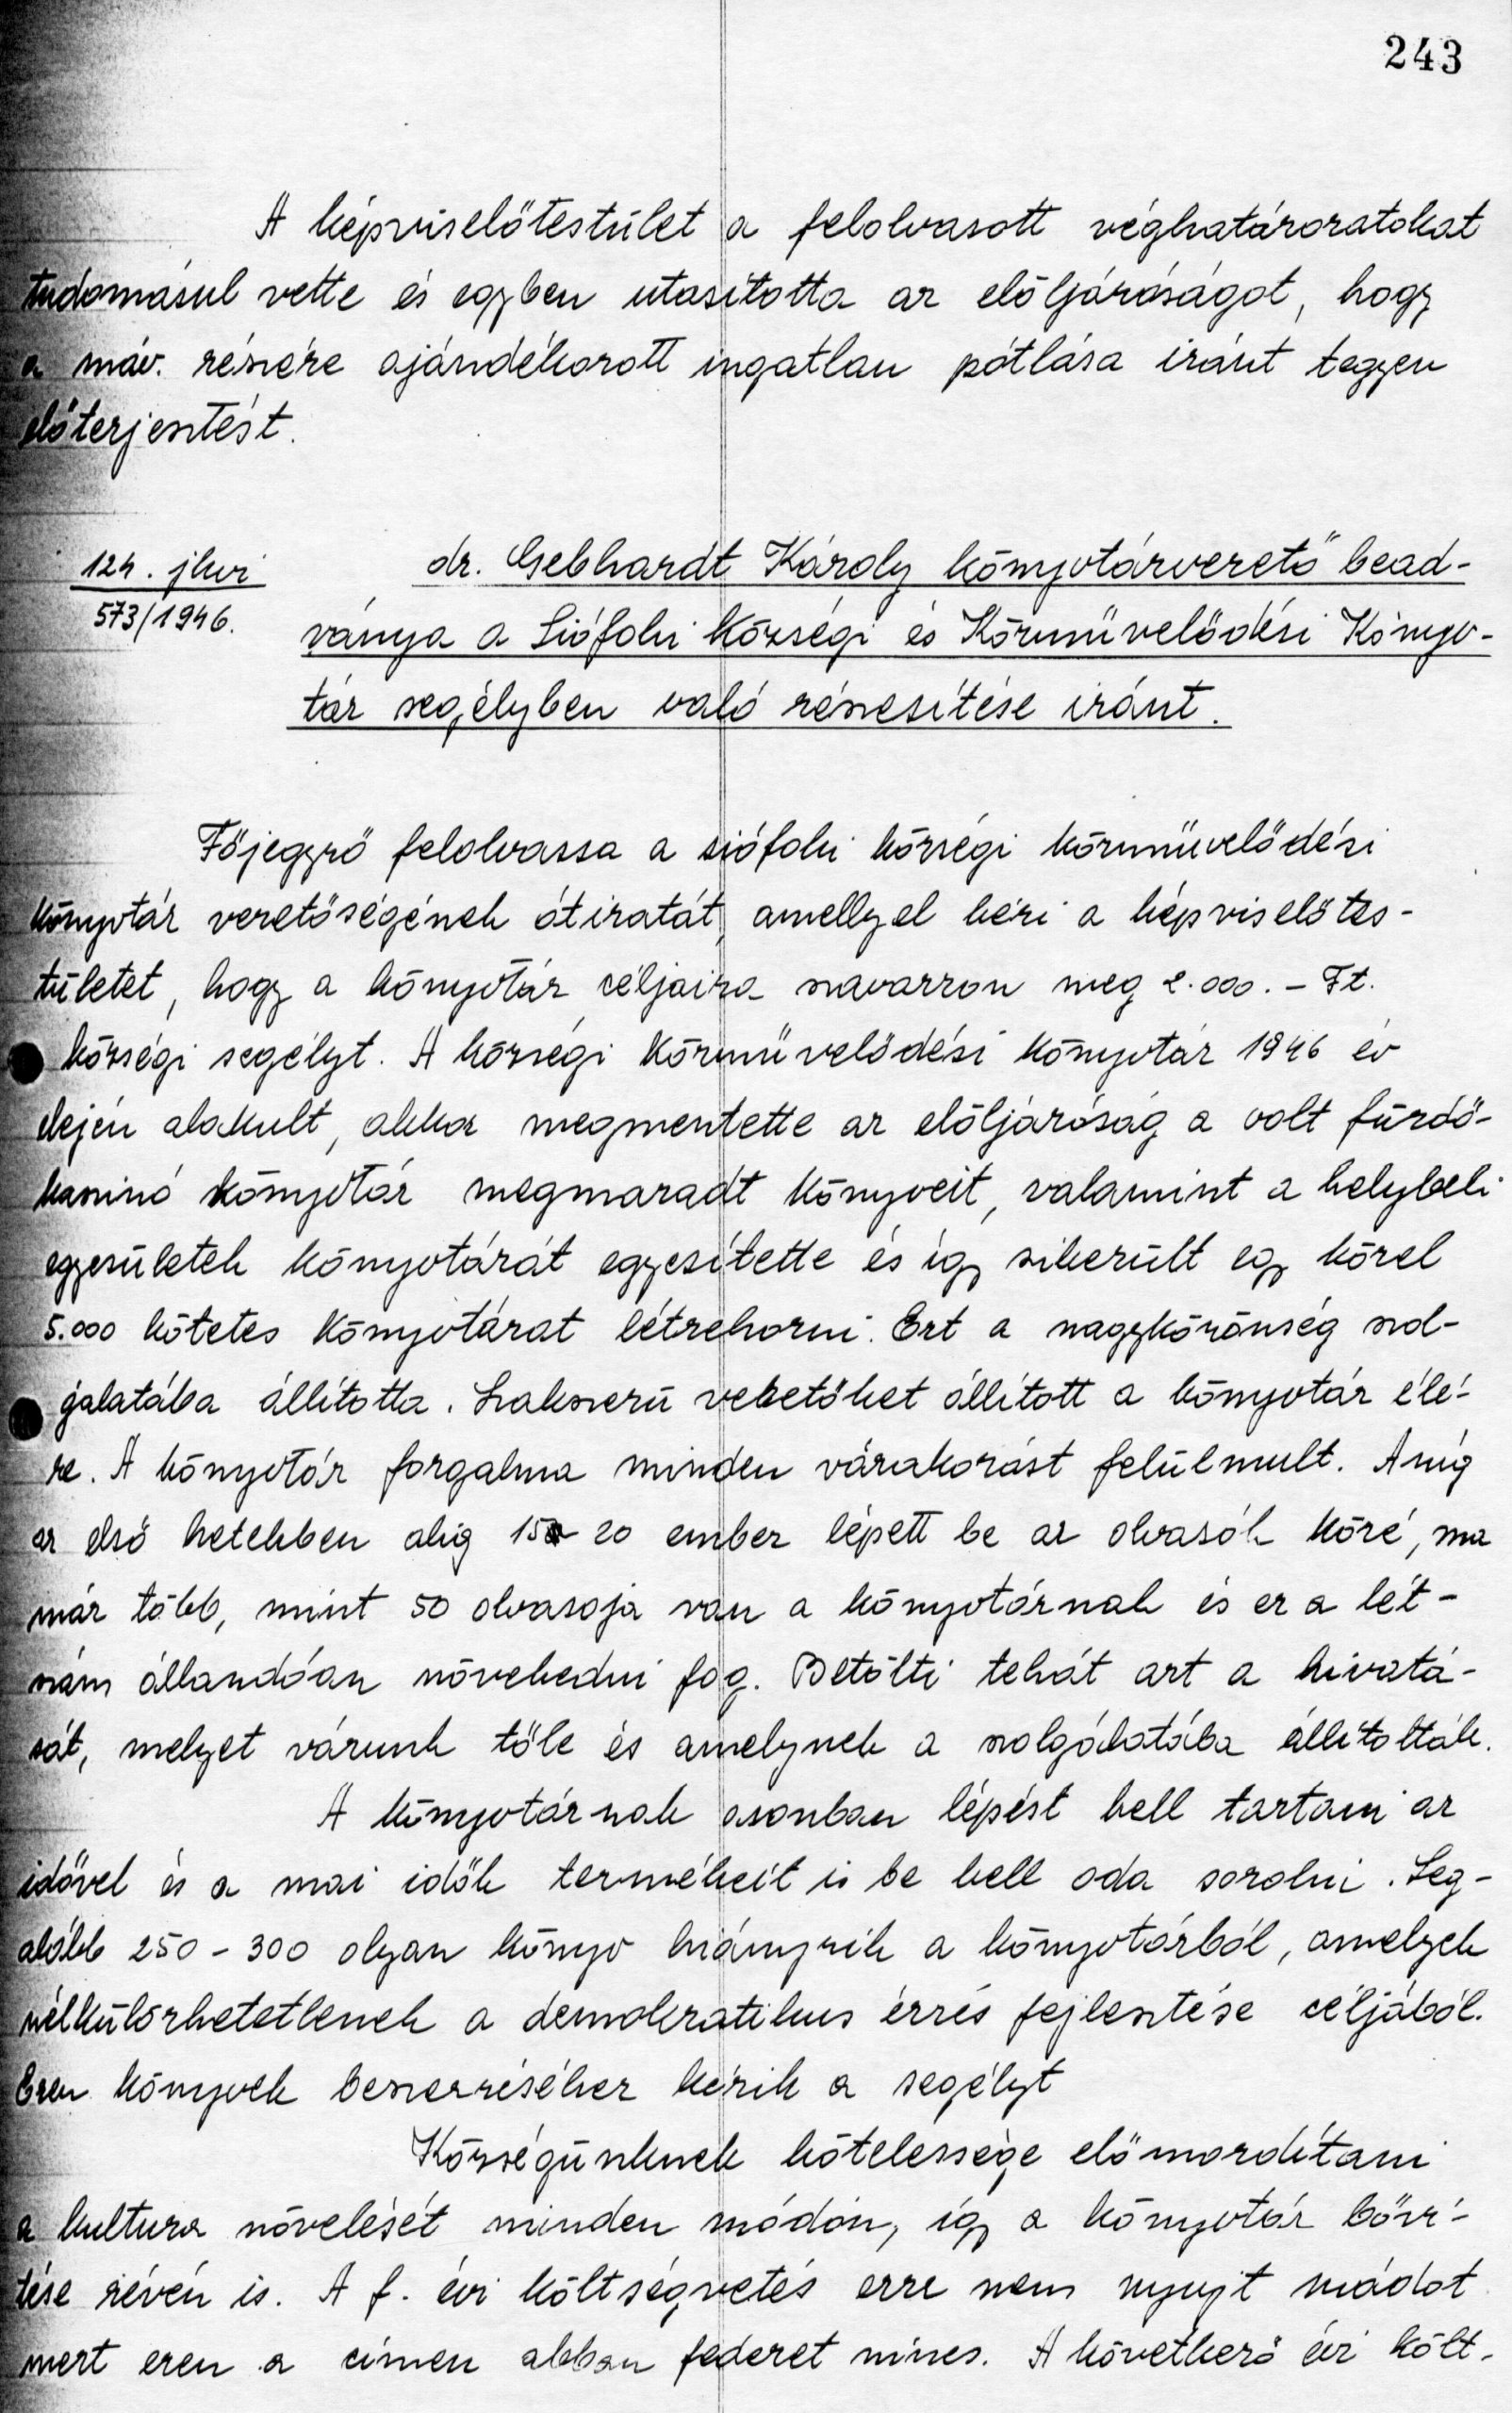 243
A képviselőtestület a felolvasott véghatározatokat
tudomásul vette és egyben utasította az elöljáróságot, hogy
a máv. részére ajándékozott ingatlan pótlása iránt tegyen
előterjesztést.
124. jkvi
573/1946.
dr. Gebhardt Károly könyvtárvezető bead-
ványa a Siófoki Községi és Közművelődési Könyv-
tár segélyben való részesítése iránt.
Főjegyző felolvassa a siófoki községi közművelődési
könyvtár vezetőségének átiratát, amellyel kéri a képviselőtes-
tületet, hogy a könyvtár céljaira szavazzon meg 2.000.- Ft.
községi segélyt. A községi közművelődési könyvtár 1946 év
elején alakult, akkor megmentette az elöljáróság a volt fürdő-
kaszinó könyvtár megmaradt könyveit, valamint a helybeli
egyesületek könyvtárát egyesítette és így sikerült egy közel
5.000 kötetes könyvtárat létrehozni. Ezt a nagyközönség szol-
gálatába állította. Szakszerű vezetőket állított a könyvtár élé-
re. A könyvtár forgalma minden várakozást felülmult. Amíg
az első hetekben alig 15 20 ember lépett be az olvasók közé, ma
már több, mint 50 olvasója van a könyvtárnak és ez a lét-
szám állandóan növekedni fog. Betölti tehát azt a hivatá-
sát, melyet várunk tőle és amelynek a szolgálatába állították.
A könyvtárnak azonban lépést kell tartani az
idővel és a mai idők termékeit is be kell oda sorolni. Leg-
alább 250-300 olyan könyv hiányzik a könyvtárból, amelyek
nélkülözhetetlenek a demokratikus érzés fejlesztése céljából.
Ezen könyvek beszerzéséhez kérik a segélyt
Községünknek kötelessége előmozdítani
a kultura növelését minden módon, így a könyvtár bőví-
tése révén is. A f. évi költségvetés erre nem nyujt módot
mert ezen a címen abban fedezet nincs. A következő évi költ-